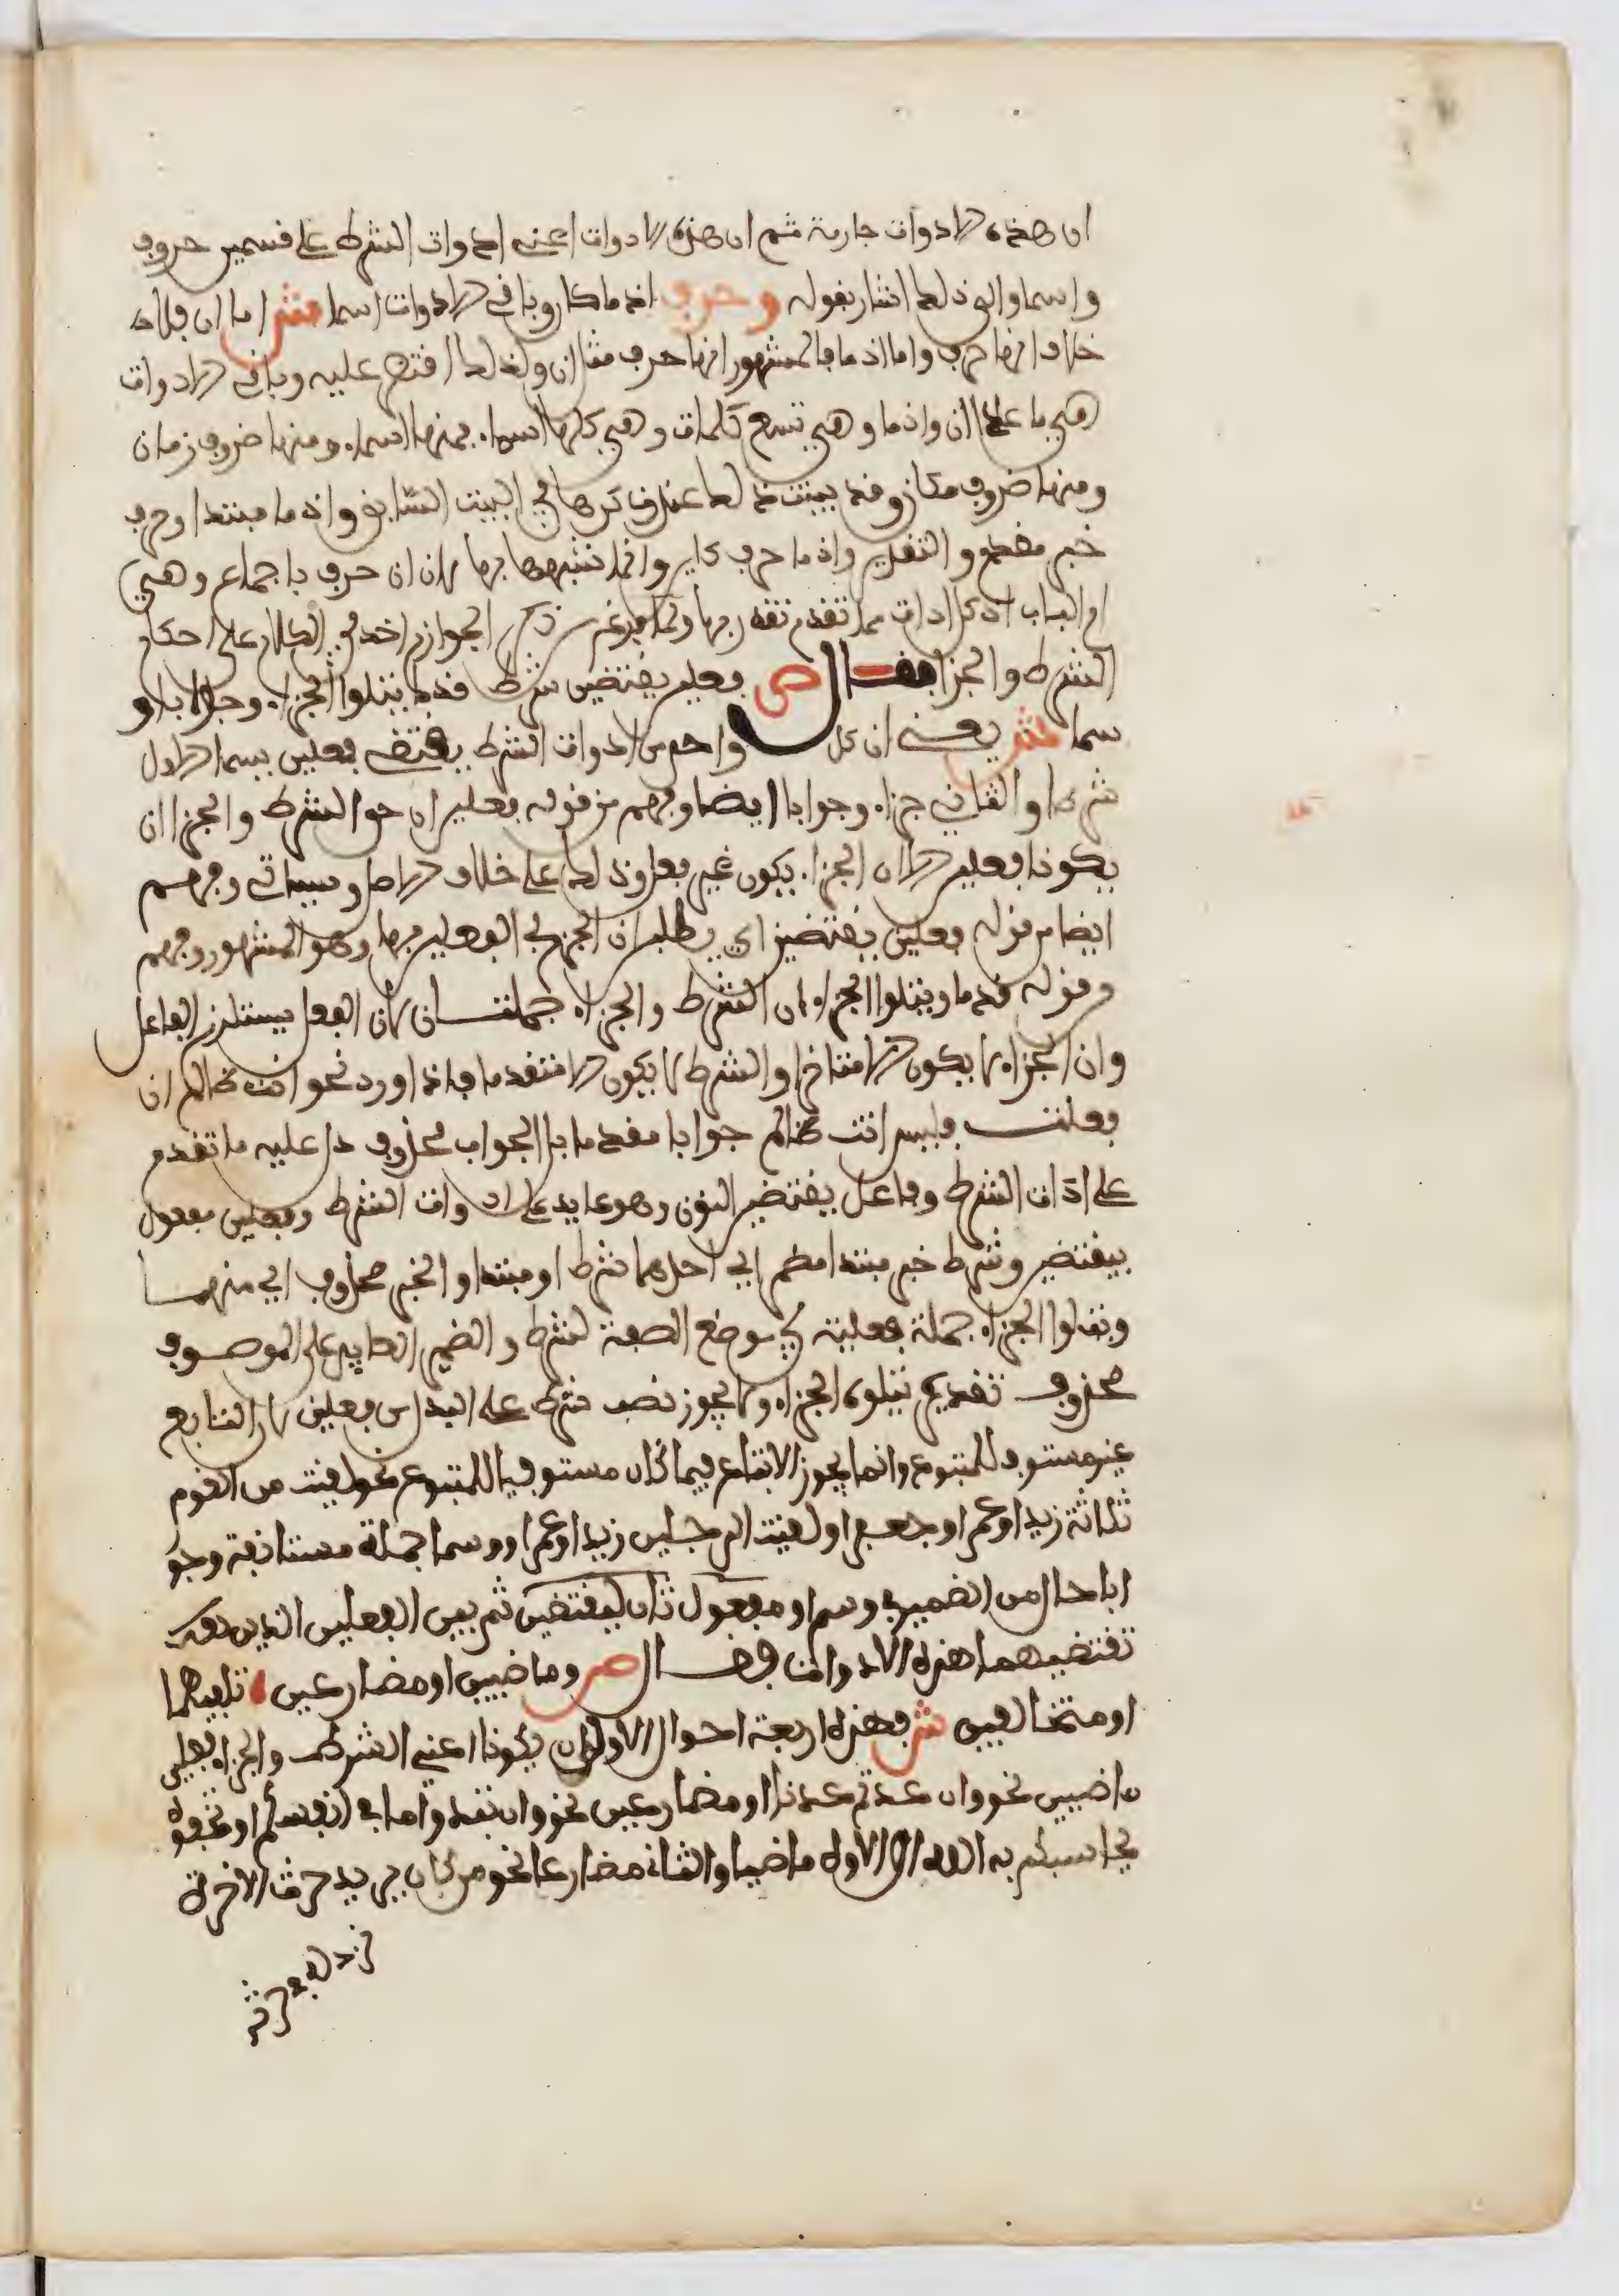 ان هذه الادوات جازمة ثم ان هذه الادوات اعني ادوات الشرط على قسمين حروف
واسما والى ذلك اشار بقوله وحرف اذ ما كان وباقي الادوات اسما ش اما ان فلا
خلاف انها حرف واما اذ ما فالمشهور انها حرف مثل ان ولذلك اقتصر عليه وباقي الادوات
هي ما عدا ان واذما وهي تسع كلمات وهي كلها اسماء فمنها اسماء ومنها ظروف زمان
ومنها ظروف مكان وقد بينت ذلك عند ذكرها في البيت السابق واذ ما مبتدا وحرف
خبر مقدم والتقدير واذ ما حرف كان وانما شبهها بها لان ان حرف باجماع وهي
ام الباب ادكل ادات مما تقدم تقدر بها ولما فرغ من ذكر الجوازم اخذ في الكلام على احكام
الشرط والجزا فقال ص فعلين يقتضين شرط قدما يتلوا الجزاء وجوابا و
سما ش يعني ان كل واحد من ادوات الشرط يقتضي فعلين يسما الاول
شرطا والثاني جزاء وجوابا ايضا وفهم من قوله فعلين ان حق الشرط والجزا ان
يكونا فعلين لان الجزاء يكون غير فعل وذلك على خلاف الاصل وسياتي وفهم
ايضا من قوله فعلين يقتضين اي يطلبن ان الجزم في الفعلين بها وهو المشهور وفهم
من قوله قدما ويتلوا الجزاء ان الشرط والجزاء جملتان لان الفعل يستلزم الفاعل
وان الجزاء لا يكون الا متاخرا والشرط لا يكون الا متقدما فاذا ورد نحو انت ظالم ان
فعلت فليس انت ظالم جوابا مقدما بل الجواب محذوف دل عليه ما تقدم
على ادات الشرط وفاعل يقتضين النون وهو عايد على ادوات الشرط وفعلين مفعول
بيقتضين وشرط خبر مبتدا مضمر اي احدهما شرط او مبتدا والخبر محذوف اي منهما
ويتلوا الجزاء جملة فعلية في موضع الصفة لشرط والضمير العايد على الموصوف
محذوف تقديره يتلوه الجزاء ولا يجوز نصب شرط على البدل من فعلين لان التابع
غير مستوف للمتبوع وانما يجوز الاتباع فيما كان مستوفيا للمتبوع نحو لقيت من القوم
ثلاثة زيدا وعمرا وجعفرا ولقيت الرجلين زيدا وعمرا ووسما جملة مستانفة وجو
ابا حال من الضمير في وسم او مفعول ثان ليقتضين ثم بين الفعلين الذين
تقتضيهما هذه الادوات فقال ص وماضيين او مضارعين تلفيهما
او متخالفين ش فهذه اربعة احوال الاول ان يكونا اعني الشرط والجزاء فعلين
ماضيين نحو وان عدتم عدنا او مضارعين نحو وان تبدوا ما في انفسكم او تخفوه
يحاسبكم به الله او الاول ماضيا والثاني مضارعا نحو من كان يريد حرث الاخرة
نزد له في حرثه